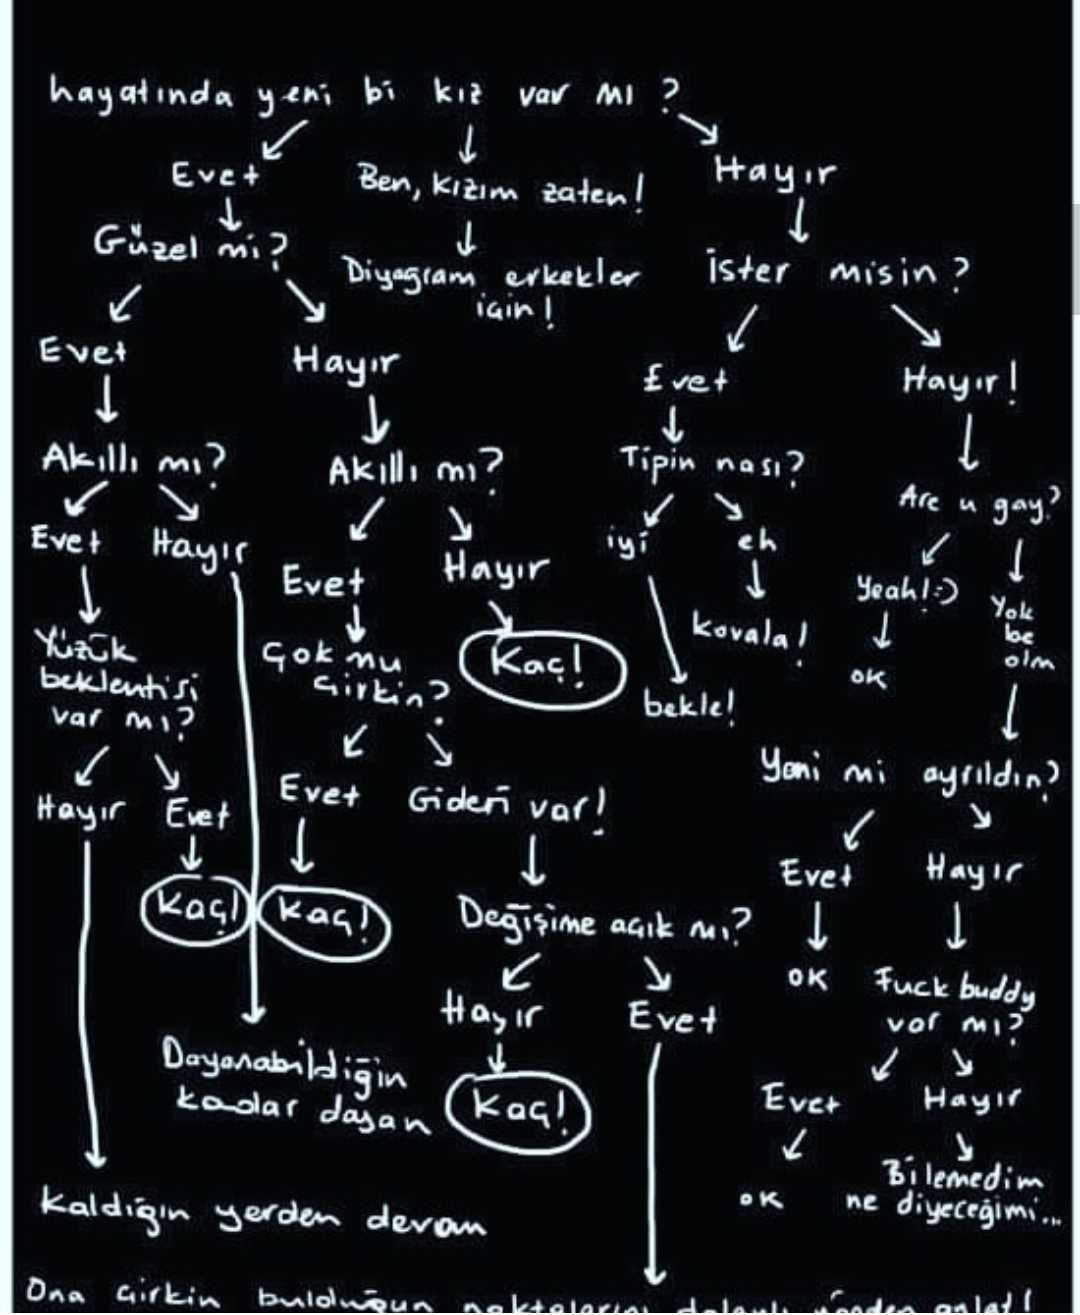 hayatında yeni bi kız var mı?
Evet
Ben, kızım zaten!
Hayır
Güzel mi?
Diyagram erkekler
için!
İster misin?
Evet
Hayır
Evet
Hayır!
Akıllı mı?
Akıllı mı?
Tipin nası?
Are u gay?
Evet
Hayır
iyi
eh
Evet
Hayır
Yeah! :)
Yok
be
olm
Yüzük
beklentisi
var mı?
Çok mu
çirkin?
Kaç!
kovala!
OK
bekle!
Hayır
Evet
Evet
Gideri var!
Yeni mi ayrıldın?
Kaç!
Kaç!
Değişime açık mı?
Evet
Hayır
Hayır
Evet
OK
Fuck buddy
var mı?
Dayanabildiğin
kadar dayan
Kaç!
Evet
Hayır
Kaldığın yerden devam
OK
Bilemedim
ne diyeceğimi...
Ona çirkin bulduğun noktalarını dolaylı yönden anlat!